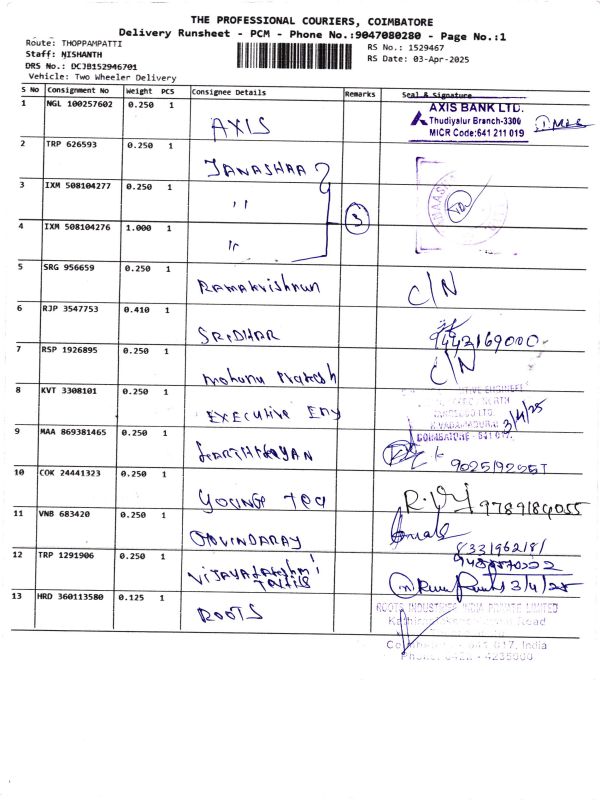 THE PROFESSIONAL COURIERS, COIMBATORE
Delivery Runsheet - PCM - Phone No.:9047080280 - Page No.:1
Route: THOPPAMPATTI
RS No.: 1529467
Staff: NISHANTH
RS Date: 03-Apr-2025
DRS No.: DCJB152946701
Vehicle: Two Wheeler Delivery
S No Consignment No Weight PCS Consignee Details Remarks Seal & Signature
1 NGL 100257602 0.250 1 AXIS
AXIS BANK LTD.
Thudiyalur Branch-3300
MICR Code:641 211 019
2 TRP 626593 0.250 1 JANASHAA
3 IXM 508104277 0.250 1 "
3
4 IXM 508104276 1.000 1 "
5 SRG 956659 0.250 1 Ramakrishnun C/N
6 RJP 3547753 0.410 1 SRIDHAR 9443169000
7 RSP 1926895 0.250 1 Mohunu Prakash C/N
8 KVT 3308101 0.250 1 EXECUTIVE ENY 3/4/25
COIMBATORE - 641 017.
9 MAA 869381465 0.250 1 HARIHARAYAN
10 COK 24441323 0.250 1 YOUNG TEA 9789184055
11 VNB 683420 0.250 1 GOVINDARAY
12 TRP 1291906 0.250 1 VIJAYALAKSHMI 3/4/25
13 HRD 360113580 0.125 1 ROOTS
ROOTS INDUSTRIES INDIA PRIVATE LIMITED
Road
641 017, India
Phone: 0422 - 4235000